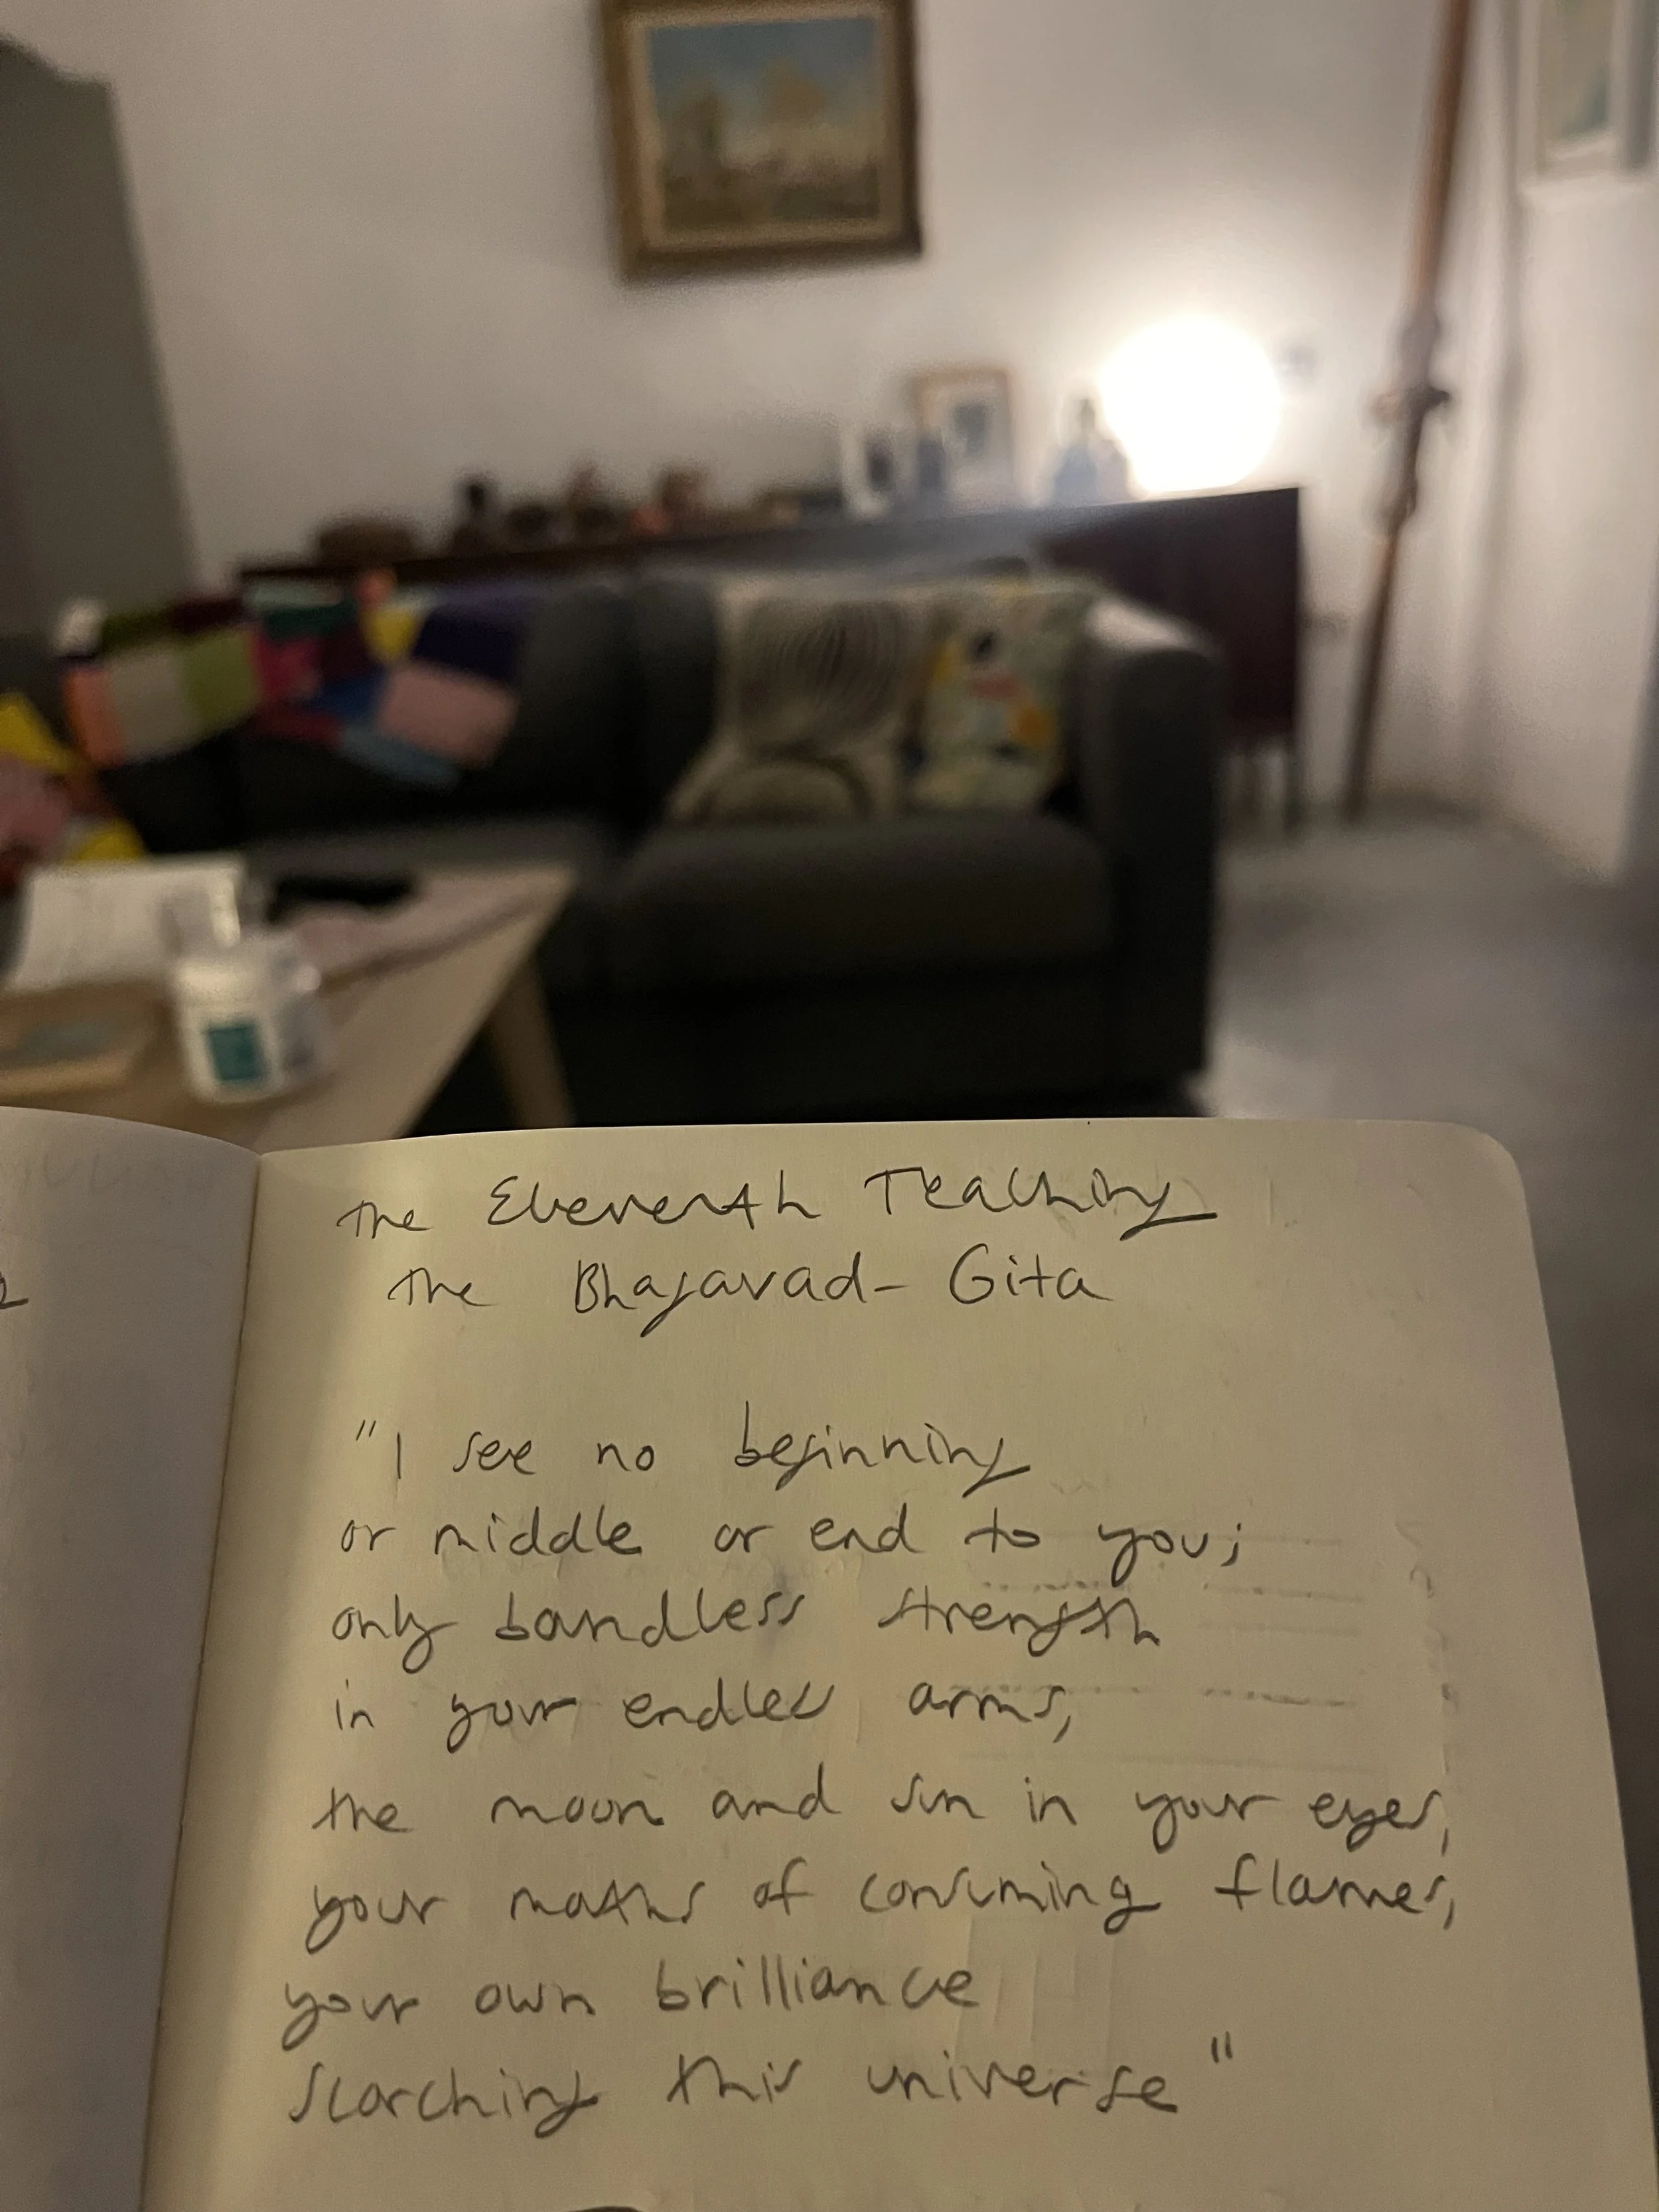 The Eleventh Teaching
The Bhagavad-Gita
"I see no beginning
or middle or end to you;
only boundless strength
in your endless arms,
the moon and sun in your eyes,
your mouths of consuming flames,
your own brilliance
scorching this universe"